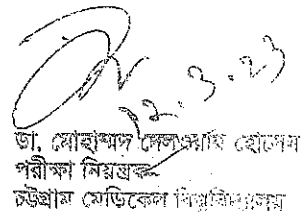 ১২.৩.২৩
ডা. মোহাম্মদ দেলওয়ার হোসেন
পরীক্ষা নিয়ন্ত্রক
চট্টগ্রাম মেডিকেল বিশ্ববিদ্যালয়